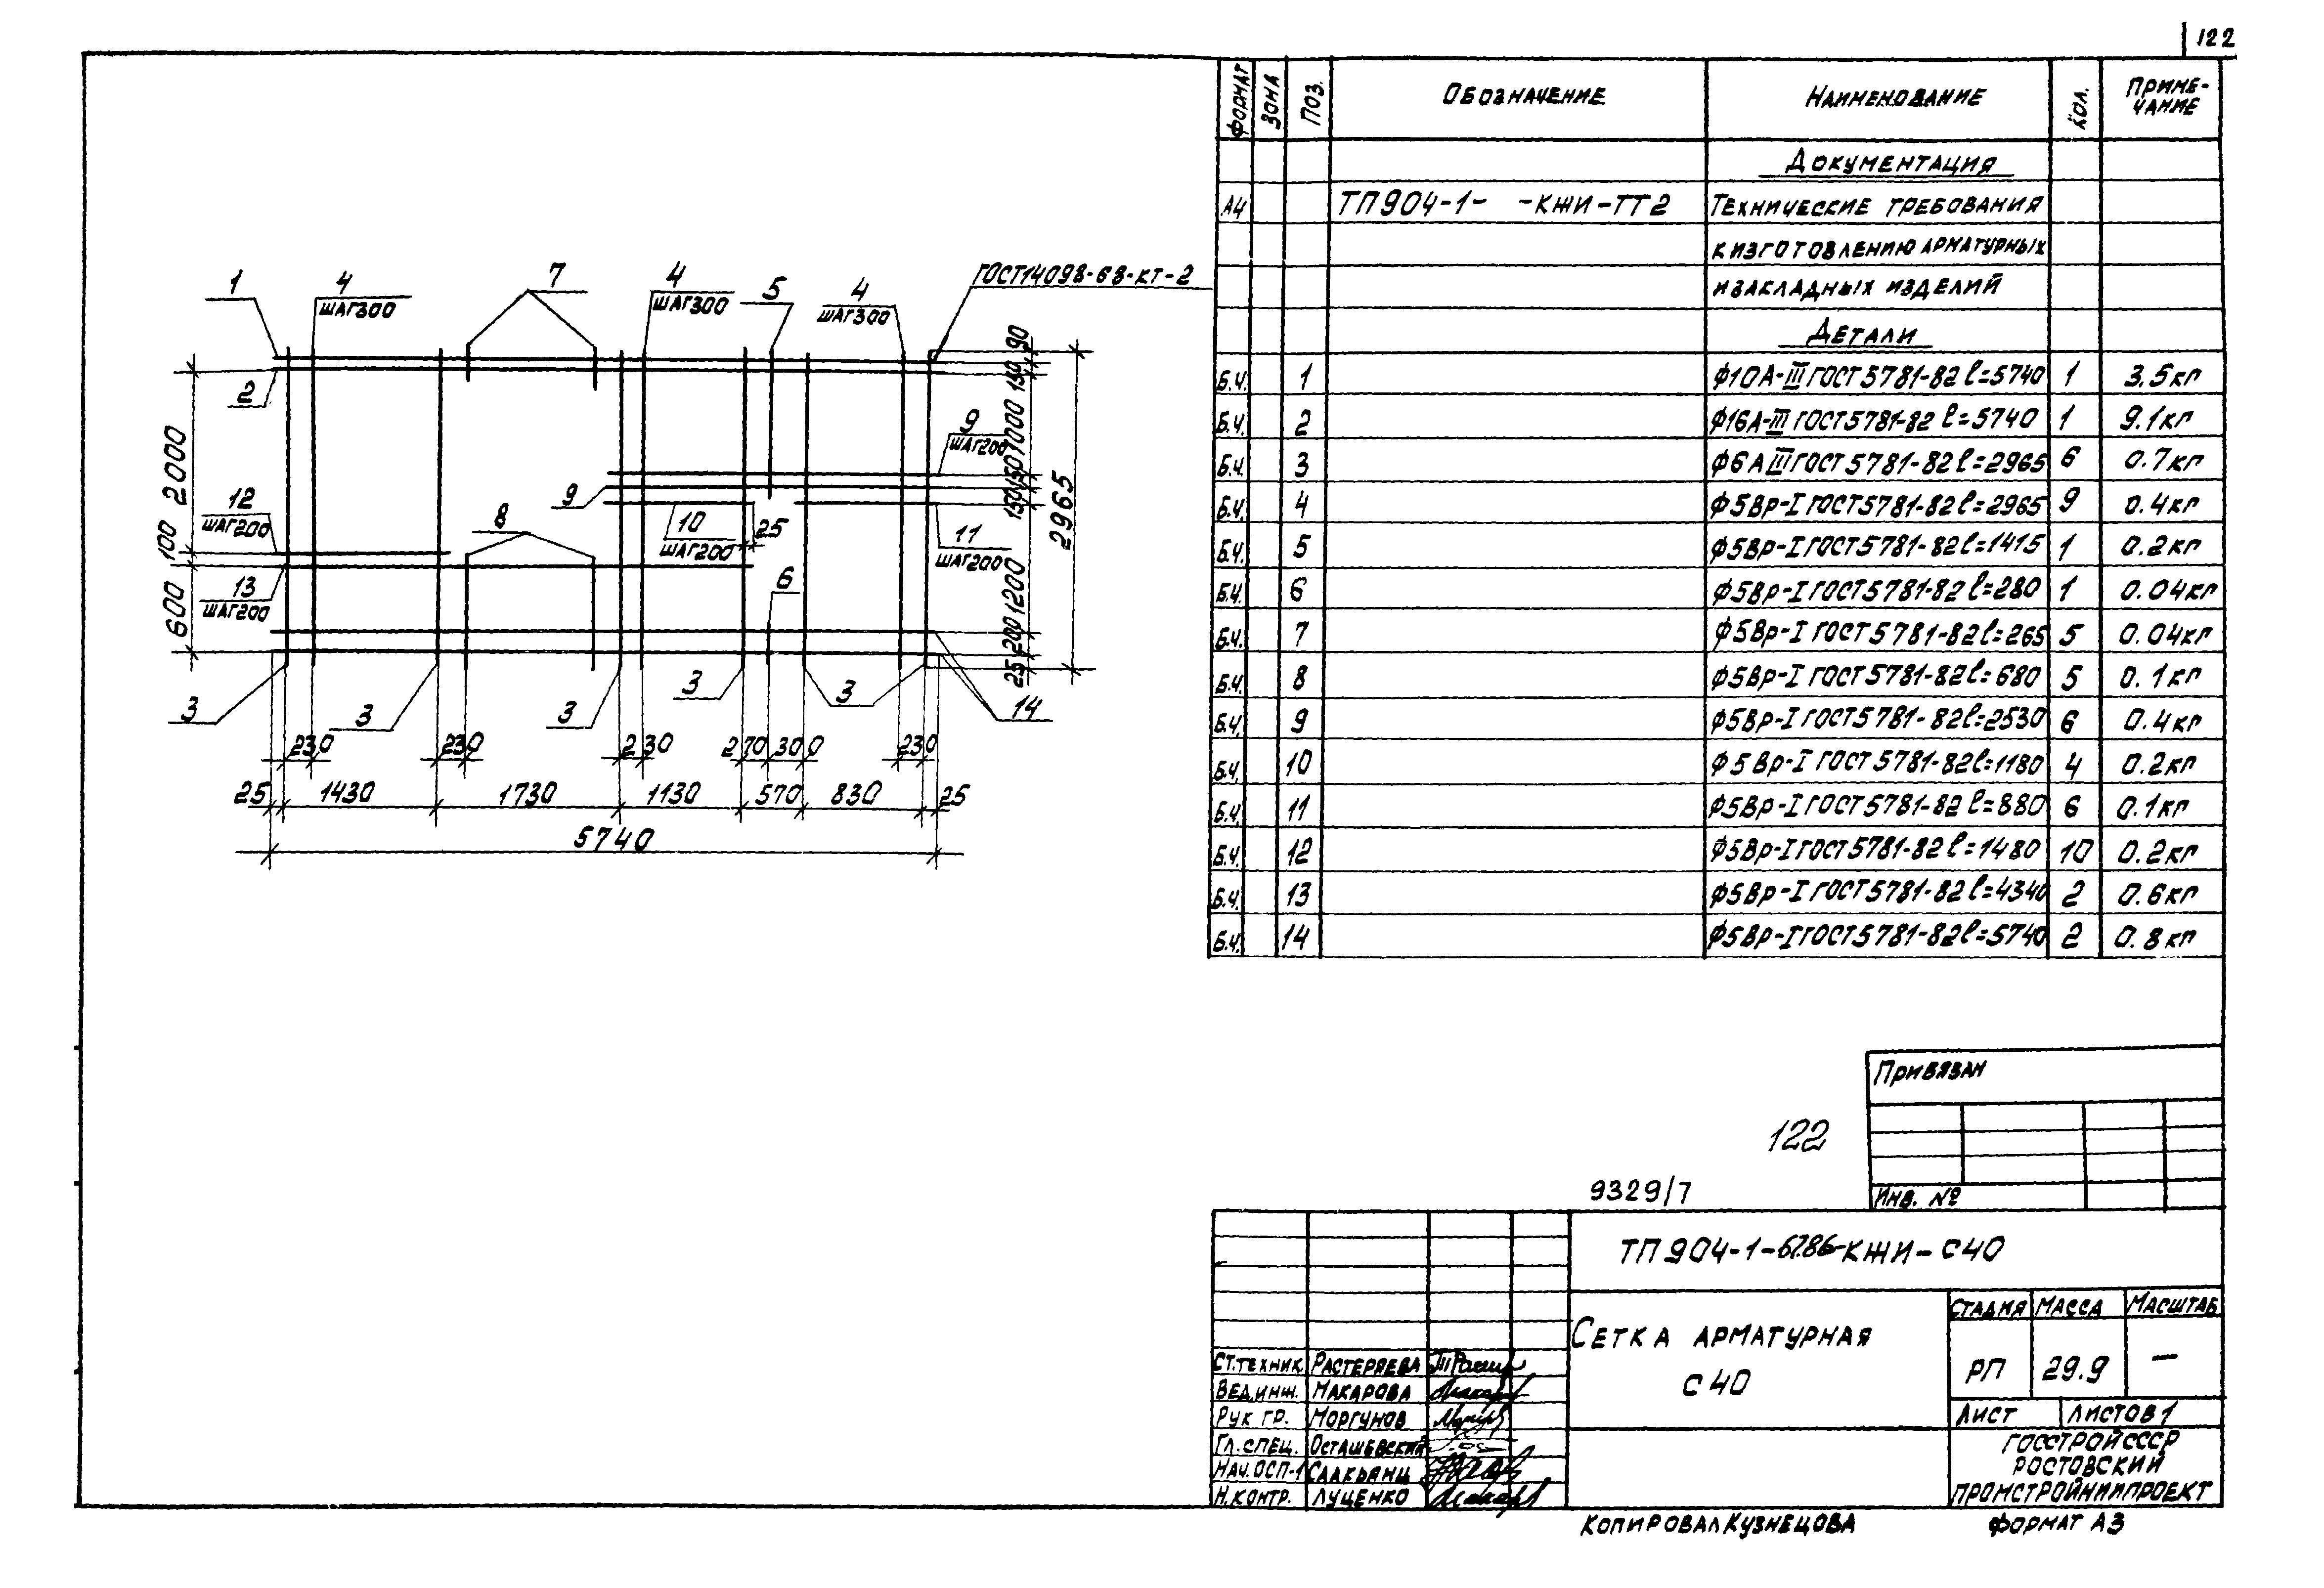 122
ФОРМАТ ЗОНА ПОЗ. ОБОЗНАЧЕНИЕ НАИМЕНОВАНИЕ КОЛ. ПРИМЕ-
ЧАНИЕ
ДОКУМЕНТАЦИЯ
А4 ТП904-1- -КЖИ-ТТ2 ТЕХНИЧЕСКИЕ ТРЕБОВАНИЯ
К ИЗГОТОВЛЕНИЮ АРМАТУРНЫХ
И ЗАКЛАДНЫХ ИЗДЕЛИЙ
ДЕТАЛИ
Б.Ч. 1 Ф10А-III ГОСТ5781-82 ℓ=5740 1 3.5кг
Б.Ч. 2 Ф16А-III ГОСТ5781-82 ℓ=5740 1 9.1кг
Б.Ч. 3 Ф6АIII ГОСТ5781-82 ℓ=2965 6 0.7кг
Б.Ч. 4 Ф5Вр-I ГОСТ5781-82 ℓ=2965 9 0.4кг
Б.Ч. 5 Ф5Вр-I ГОСТ5781-82 ℓ=1415 1 0.2кг
Б.Ч. 6 Ф5Вр-I ГОСТ5781-82 ℓ=280 1 0.04кг
Б.Ч. 7 Ф5Вр-I ГОСТ5781-82 ℓ=265 5 0.04кг
Б.Ч. 8 Ф5Вр-I ГОСТ5781-82 ℓ=680 5 0.1кг
Б.Ч. 9 Ф5Вр-I ГОСТ5781-82 ℓ=2530 6 0.4кг
Б.Ч. 10 Ф5Вр-I ГОСТ5781-82 ℓ=1180 4 0.2кг
Б.Ч. 11 Ф5Вр-I ГОСТ5781-82 ℓ=880 6 0.1кг
Б.Ч. 12 Ф5Вр-I ГОСТ5781-82 ℓ=1480 10 0.2кг
Б.Ч. 13 Ф5Вр-I ГОСТ5781-82 ℓ=4340 2 0.6кг
Б.Ч. 14 Ф5Вр-I ГОСТ5781-82 ℓ=5740 2 0.8кг
1 4 7 4 5 4 ГОСТ14098-68-КТ-2
ШАГ300 ШАГ300 ШАГ300
2
90
150
1000
150
150
1200
200
25
2965
2000
100
600
9
ШАГ200
9
12
ШАГ200
8
10
ШАГ200
25
11
ШАГ200
13
ШАГ200
6
3 3 3 3 3 14
230 230 230 270 300 230
25 1430 1730 1130 570 830 25
5740
ПРИВЯЗАН
122
9329/7
ИНВ. №
ТП904-1-67.86-КЖИ-С40
СЕТКА АРМАТУРНАЯ
С40
СТАДИЯ МАССА МАСШТАБ
РП 29.9 —
ЛИСТ ЛИСТОВ 1
ГОССТРОЙ СССР
РОСТОВСКИЙ
ПРОМСТРОЙНИИПРОЕКТ
СТ.ТЕХНИК РАСТЕРЯЕВА
ВЕД.ИНЖ. МАКАРОВА
РУК ГР. МОРГУНОВ
ГЛ.СПЕЦ. ОСТАШЕВСКИЙ
НАЧ.ОСП-1 СЛАКЬЯНЦ
Н.КОНТР. ЛУЦЕНКО
КОПИРОВАЛ КУЗНЕЦОВА ФОРМАТ А3